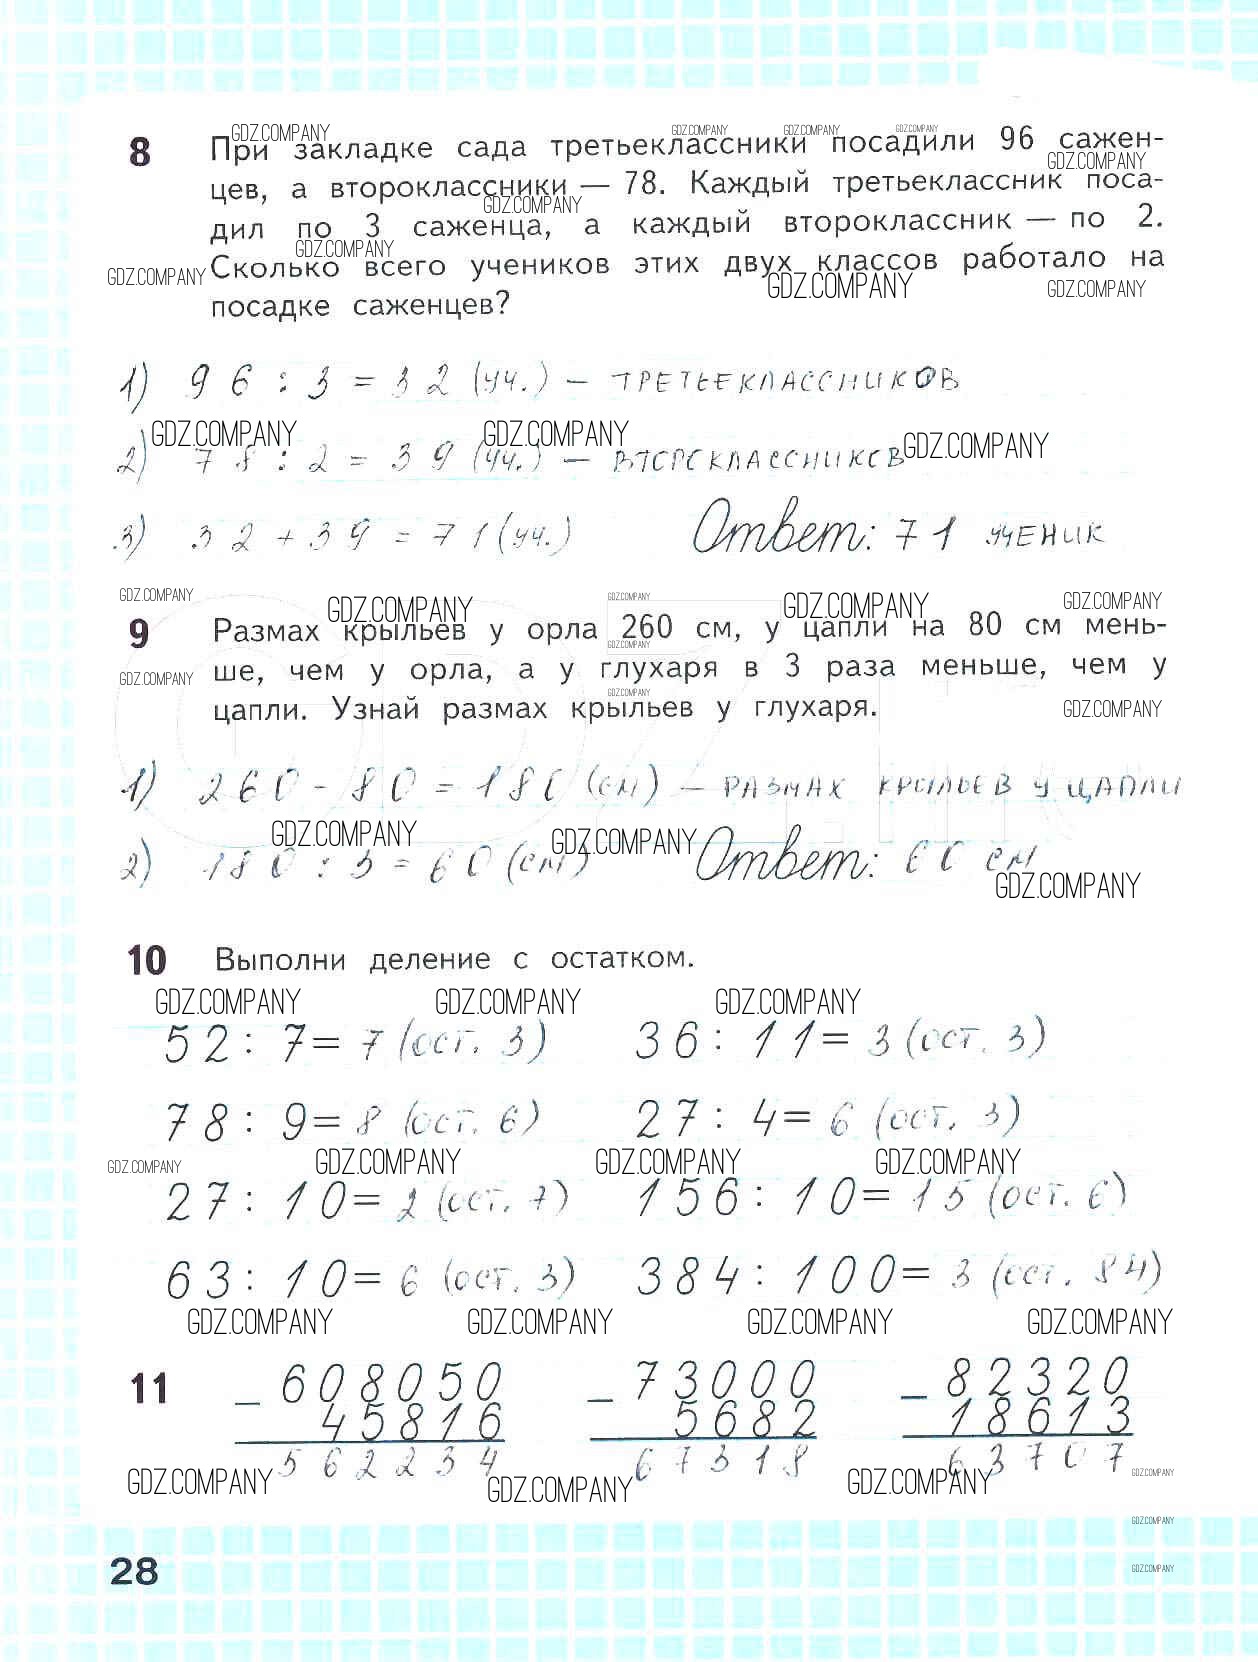 8 При закладке сада третьеклассники посадили 96 сажен-
цев, а второклассники — 78. Каждый третьеклассник поса-
дил по 3 саженца, а каждый второклассник — по 2.
Сколько всего учеников этих двух классов работало на
посадке саженцев?
1) 96 : 3 = 32 (уч.) – ТРЕТЬЕКЛАССНИКОВ
2) 78 : 2 = 39 (уч.) – ВТОРОКЛАССНИКОВ
3) 32 + 39 = 71 (уч.) Ответ: 71 УЧЕНИК
9 Размах крыльев у орла 260 см, у цапли на 80 см мень-
ше, чем у орла, а у глухаря в 3 раза меньше, чем у
цапли. Узнай размах крыльев у глухаря.
1) 260 - 80 = 180 (см) – РАЗМАХ КРЫЛЬЕВ У ЦАПЛИ
2) 180 : 3 = 60 (см) Ответ: 60 см
10 Выполни деление с остатком.
52 : 7 = 7 (ост. 3) 36 : 11 = 3 (ост. 3)
78 : 9 = 8 (ост. 6) 27 : 4 = 6 (ост. 3)
27 : 10 = 2 (ост. 7) 156 : 10 = 15 (ост. 6)
63 : 10 = 6 (ост. 3) 384 : 100 = 3 (ост. 84)
11 – 608050 – 73000 – 82320
45816 5682 18613
562234 67318 63707
28
GDZ.COMPANY